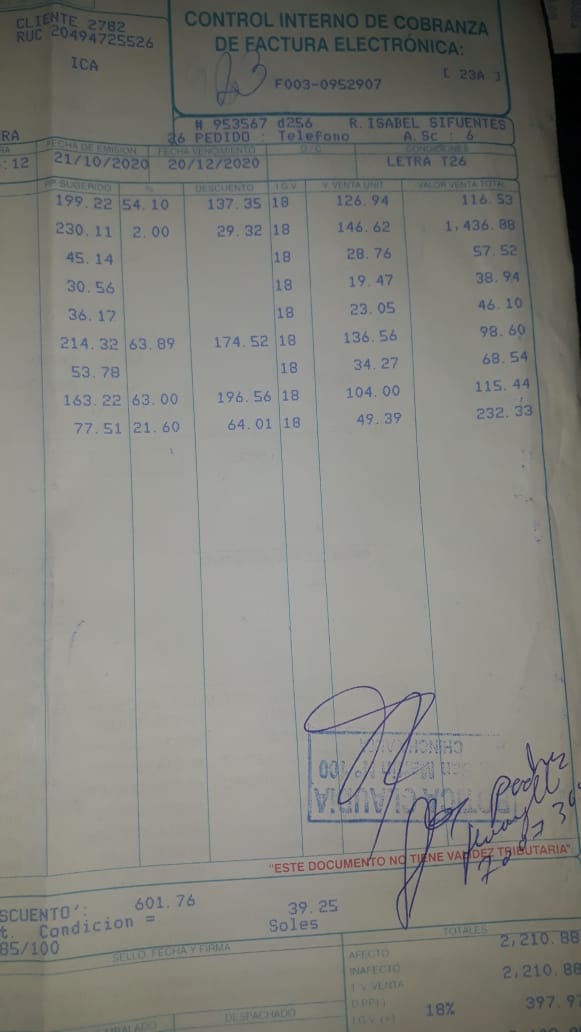 CLIENTE 2782
RUC 20494725526
ICA
CONTROL INTERNO DE COBRANZA
DE FACTURA ELECTRÓNICA:
F003-0952907
[ 23A ]
# 953567 d256 R.ISABEL SIFUENTES
RA 26 PEDIDO : Telefono A.Sc : 6
RA FECHA DE EMISION FECHA VENCIMIENTO O/C CONDICIONES
:12 21/10/2020 20/12/2020 LETRA T26
PP SUGERIDO % DESCUENTO I G V V VENTA UNIT VALOR VENTA TOTAL
199.22 54.10 137.35 18 126.94 116.53
230.11 2.00 29.32 18 146.62 1,436.88
45.14 18 28.76 57.52
30.56 18 19.47 38.94
36.17 18 23.05 46.10
214.32 63.89 174.52 18 136.56 98.60
53.78 18 34.27 68.54
163.22 63.00 196.56 18 104.00 115.44
77.51 21.60 64.01 18 49.39 232.33
BOTICA CLAUDIA
N° 100
"ESTE DOCUMENTO NO TIENE VALIDEZ TRIBUTARIA"
SCUENTO': 601.76 39.25
t. Condicion = Soles
85/100
SELLO, FECHA Y FIRMA
TOTALES
AFECTO 2,210.88
INAFECTO
V VENTA 2,210.88
D.PP(-)
I.G.V.(+) 18% 397.9
EMBALADO
DESPACHADO